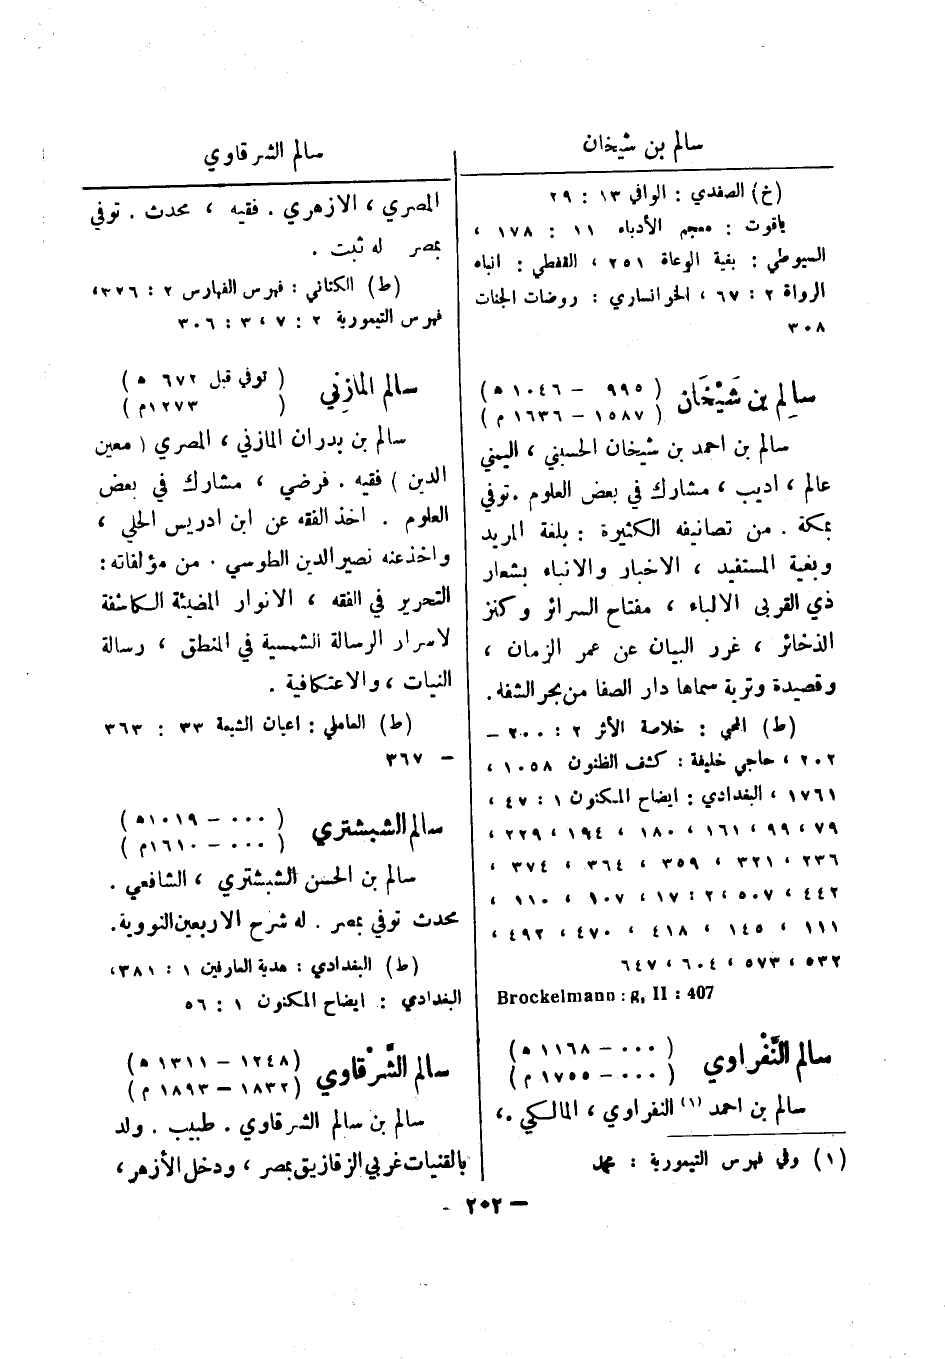 سالم بن شيخان
(خ) الصفدي : الوافي ١٣ : ٢٩
ياقوت : معجم الأدباء ١١ : ١٧٨ ،
السيوطي : بغية الوعاة ٢٥١ ، القفطي : انباه
الرواة ٢ : ٦٧ ، الخوانساري : روضات الجنات
٣٠٨
سالِم بن شَيْخَان
( ٩٩٥ – ١٠٤٦ ه )
( ١٥٨٧ – ١٦٣٦ م )
سالم بن احمد بن شيخان الحسيني ، اليمني
عالم ، اديب ، مشارك في بعض العلوم . توفي
بمكة . من تصانيفه الكثيرة : بلغة المريد
وبغية المستفيد ، الاخبار والانباء بشعار
ذي القربى الالباء ، مفتاح السرائر وكنز
الذخائر ، غرر البيان عن عمر الزمان ،
وقصيدة وترية سماها دار الصفا من بحر الشفه .
(ط) المحبي : خلاصة الأثر ٢ : ٢٠٠ –
٢٠٢ ، حاجي خليفة : كشف الظنون ١٠٥٨ ،
١٧٦١ ، البغدادي : ايضاح المكنون ١ : ٤٧ ،
٧٩ ، ٩٩ ، ١٦١ ، ١٨٠ ، ١٩٤ ، ٢٢٩ ،
٢٣٦ ، ٣٢١ ، ٣٥٩ ، ٣٦٤ ، ٣٧٤ ،
٤٤٢ ، ٥٠٧ ، ٢ : ١٧ ، ١٠٧ ، ١١٠ ،
١١١ ، ١٤٥ ، ٤١٨ ، ٤٧٠ ، ٤٩٢ ،
٥٣٢ ، ٥٧٣ ، ٦٠٤ ، ٦٤٧
Brockelmann : g, II : 407
سالم النَّفْراوي
( ٠٠٠ – ١١٦٨ ه )
( ٠٠٠ – ١٧٥٥ م )
سالم بن احمد (١) النفراوي ، المالكي . ،
(١) وفي فهرس التيمورية : محمد
سالم الشرقاوي
المصري ، الازهري . فقيه ، محدث . توفي
بمصر له ثبت .
(ط) الكتاني : فهرس الفهارس ٢ : ٣٢٦ ،
فهرس التيمورية ٢ : ٧ ، ٣ : ٣٠٦
سالم المازِني
( توفي قبل ٦٧٢ ه )
( ١٢٧٣م )
سالم بن بدران المازني ، المصري ( معين
الدين ) فقيه . فرضي ، مشارك في بعض
العلوم . اخذ الفقه عن ابن ادريس الحلي ،
واخذ عنه نصير الدين الطوسي . من مؤلفاته :
التحرير في الفقه ، الانوار المضيئة الكاشفة
لاسرار الرسالة الشمسية في المنطق ، رسالة
النيات ، والاعتكافية .
(ط) العاملي : اعيان الشيعة ٣٣ : ٣٦٣
– ٣٦٧
سالم الشبشتري
( ٠٠٠ – ١٠١٩ه )
( ٠٠٠ – ١٦١٠م )
سالم بن الحسن الشبشتري ، الشافعي .
محدث توفي بمصر . له شرح الاربعين النووية .
(ط) البغدادي : هدية العارفين ١ : ٣٨١ ،
البغدادي : ايضاح المكنون ١ : ٥٦
سالم الشَّرْقاوي
( ١٢٤٨ – ١٣١١ ه )
( ١٨٣٢ – ١٨٩٣ م )
سالم بن سالم الشرقاوي . طبيب . ولد
بالقنيات غربي الزقازيق بمصر ، ودخل الأزهر ،
– ٢٠٢ -